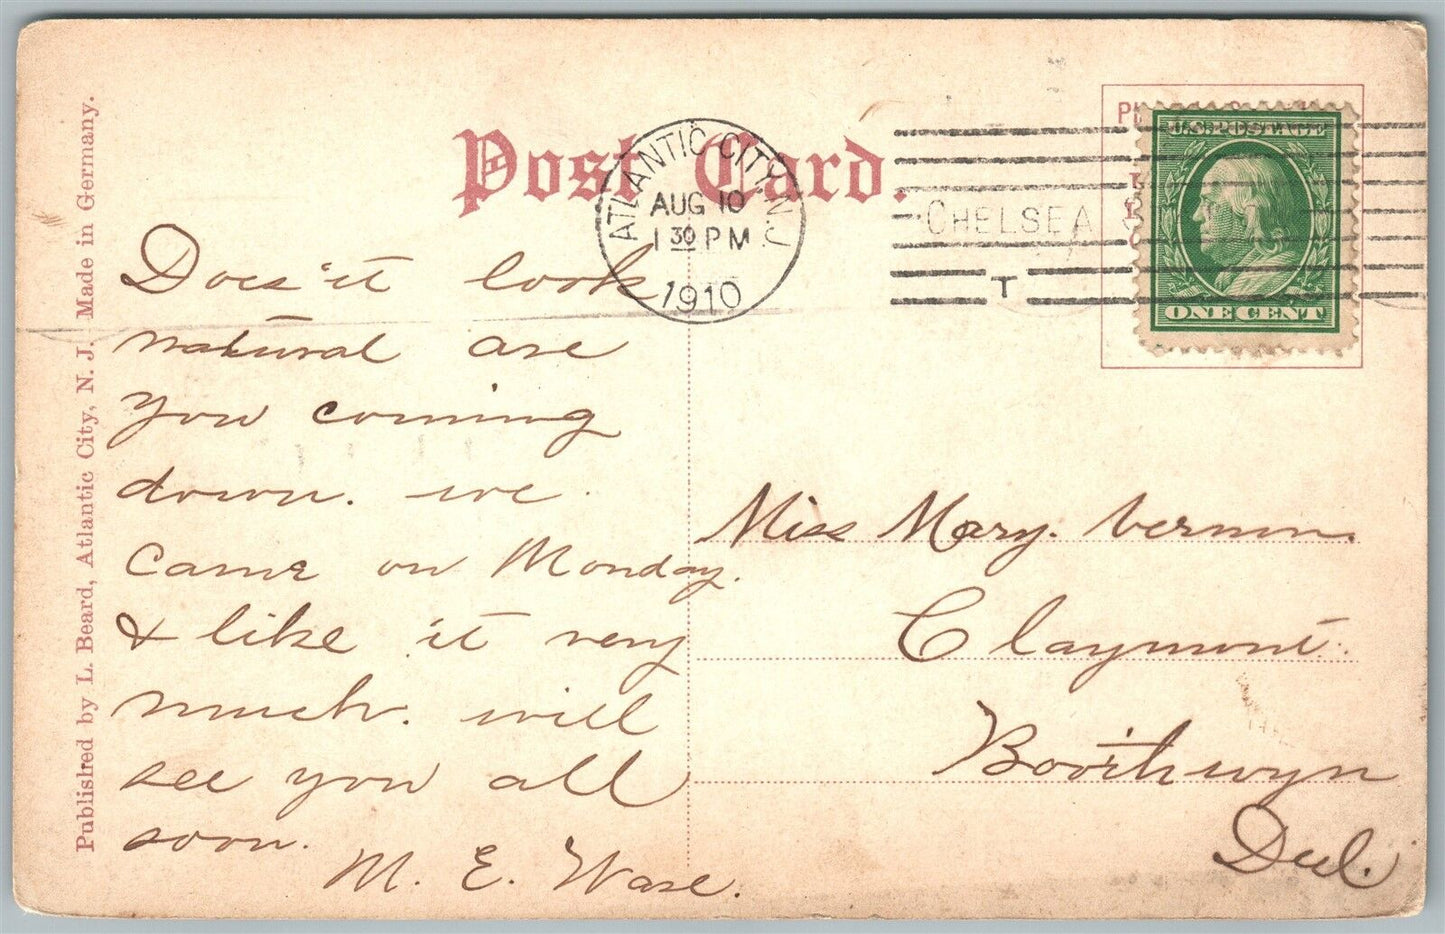 Post Card.
ATLANTIC CITY, N.J.
AUG 10
1 30 PM
1910
CHELSEA
T
U.S. POSTAGE
ONE CENT
Published by L. Beard, Atlantic City, N. J. Made in Germany.
Does it look
natural are
you coming
down. we
came on Monday.
& like it very
much. will
see you all
soon.
M. E. Wase.
Miss Mary. Vernon.
Claymont.
Boothwyn
Del.